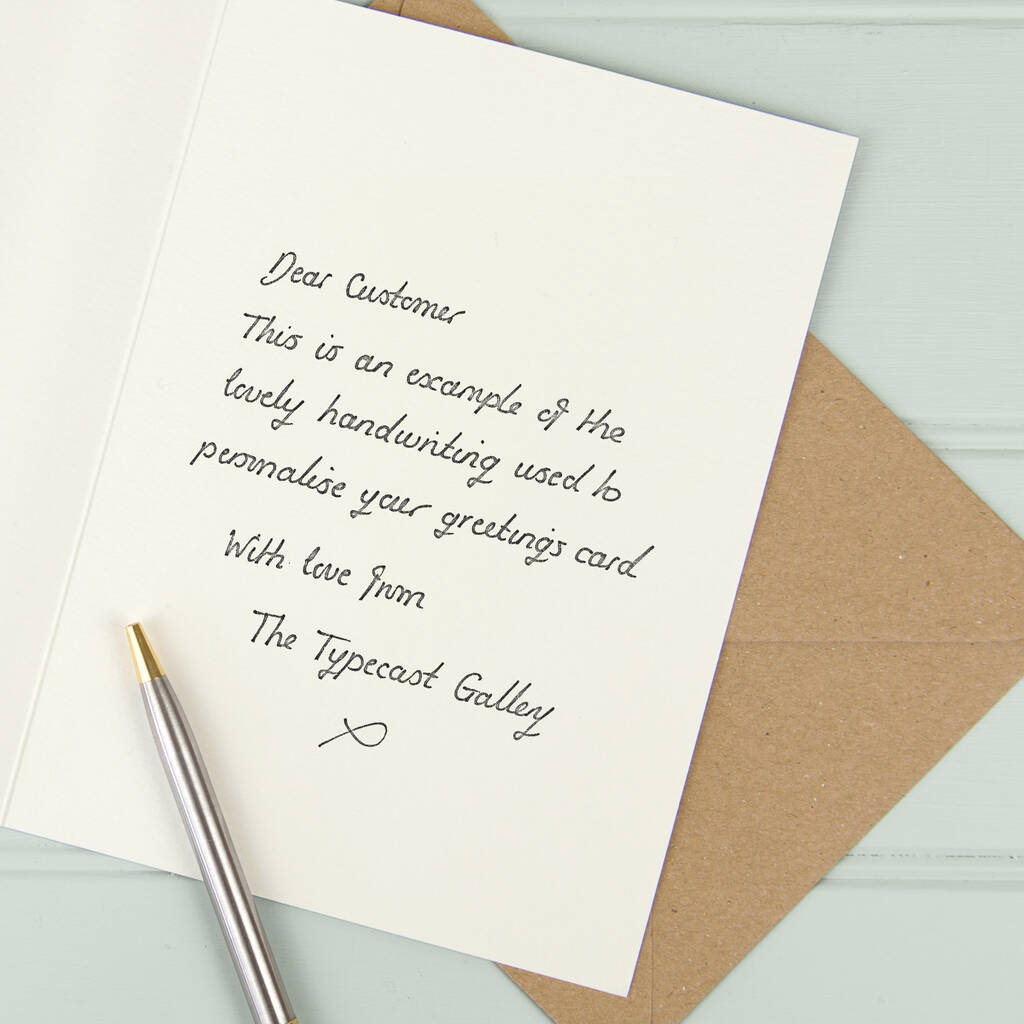 Dear Customer
This is an example of the
lovely handwriting used to
personalise your greetings card
With love from
The Typecast Gallery
x